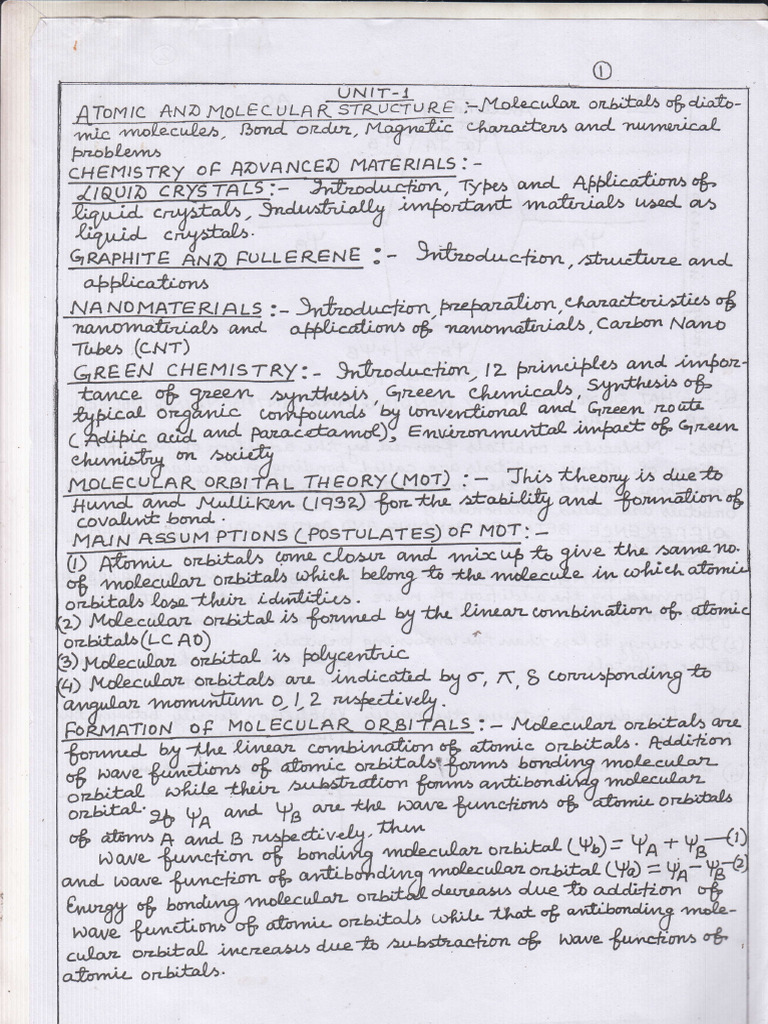 1
UNIT-1
ATOMIC AND MOLECULAR STRUCTURE :- Molecular orbitals of diato-
mic molecules, Bond order, Magnetic characters and numerical
problems
CHEMISTRY OF ADVANCED MATERIALS :-
LIQUID CRYSTALS :- Introduction, Types and Applications of
liquid crystals, Industrially important materials used as
liquid crystals.
GRAPHITE AND FULLERENE :- Introduction, structure and
applications
NANOMATERIALS :- Introduction, preparation, characteristics of
nanomaterials and applications of nanomaterials, Carbon Nano
Tubes (CNT)
GREEN CHEMISTRY :- Introduction, 12 principles and impor-
tance of green synthesis, Green chemicals, Synthesis of
typical organic compounds by conventional and Green route
(Adipic acid and Paracetamol), Environmental impact of Green
chemistry on society
MOLECULAR ORBITAL THEORY (MOT) :- This theory is due to
Hund and Mulliken (1932) for the stability and formation of
covalent bond.
MAIN ASSUMPTIONS (POSTULATES) OF MOT :-
(1) Atomic orbitals come closer and mix up to give the same no.
of molecular orbitals which belong to the molecule in which atomic
orbitals lose their identities.
(2) Molecular orbital is formed by the linear combination of atomic
orbitals (LCAO)
(3) Molecular orbital is polycentric
(4) Molecular orbitals are indicated by σ, π, δ corresponding to
angular momentum 0, 1, 2 respectively.
FORMATION OF MOLECULAR ORBITALS :- Molecular orbitals are
formed by the linear combination of atomic orbitals. Addition
of wave functions of atomic orbitals forms bonding molecular
orbital while their substration forms antibonding molecular
orbital. If ψA and ψB are the wave functions of atomic orbitals
of atoms A and B respectively, then
wave function of bonding molecular orbital (ψb) = ψA + ψB —(1)
and wave function of antibonding molecular orbital (ψa) = ψA - ψB —(2)
Energy of bonding molecular orbital decreases due to addition of
wave functions of atomic orbitals while that of antibonding mole-
cular orbital increases due to substraction of wave functions of
atomic orbitals.